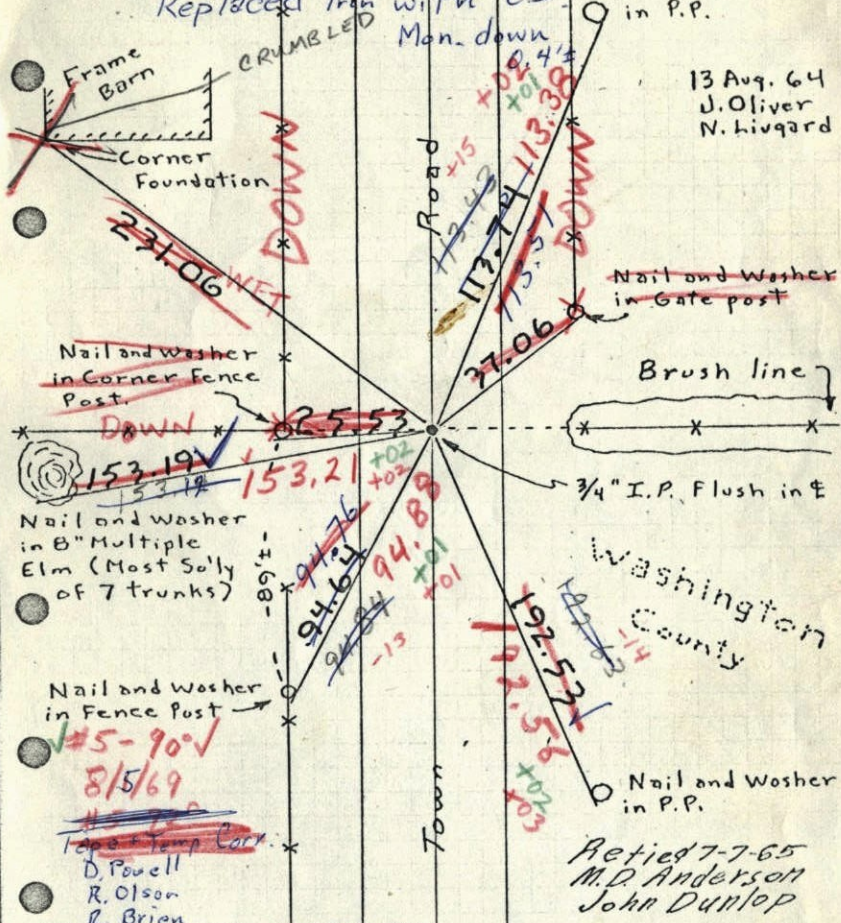 Replaced Iron with
Mon. down
0.4'±
in P.P.
13 Aug. 64
J. Oliver
N. Livgard
Frame
Barn
CRUMBLED
Corner
Foundation
DOWN
Road
+02
+01
113.38
+15
113.43
113.74
113.51
DOWN
231.06
WFT
Nail and Washer
in Gate post
37.06
Nail and Washer
in Corner Fence
Post.
DOWN
25.53
Brush line
153.19
153.12
153.21
+02
+02
3/4" I.P. Flush in ℄
Nail and Washer
in 8" Multiple
Elm (Most So'ly
of 7 trunks)
-89'±-
94.76
94.64
94.88
+01
+01
94.84
-13
Washington
County
192.53
-14
192.56
+02
+03
Nail and Washer
in Fence Post
Nail and Washer
in P.P.
Town
#5-90°
8/5/69
Tape + Temp Corr.
D. Powell
R. Olson
R. Brien
Retied 7-7-65
M.D. Anderson
John Dunlop